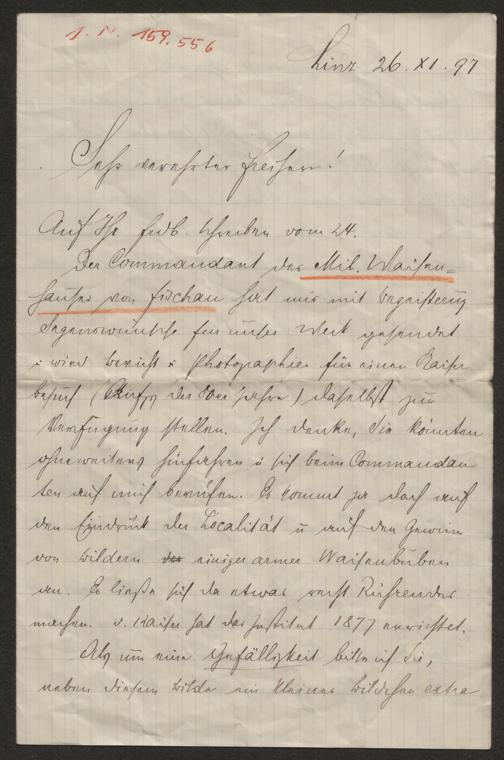 J. N. 159.556
Linz 26. XI. 97
Sehr verehrter Freiherr!
Auf Ihr Schreiben vom 24.
Der Commandant des Mil. Waisen-
hauses von Fischau hat mir mit Begeisterung
Segenswünsche für unser Werk gesendet
u wird Bericht u Photographie für einen Kaiser
besuch (Anfg der 80er Jahre) daselbst zur
Verfügung stellen. Ich denke, Sie könnten
ohneweiters hinfahren u sich beim Commandan
ten auf mich berufen. Es kommt ja doch auf
den Eindruck der Localität u auf den Gewinn
von Bildern einiger armer Waisenbuben
an. Es ließe sich da etwas recht Rührendes
machen. D. Kaiser hat das Institut 1877 errichtet.
Als um eine Gefälligkeit bitte ich Sie,
neben diesem Bilde ein kleines Bildchen extra